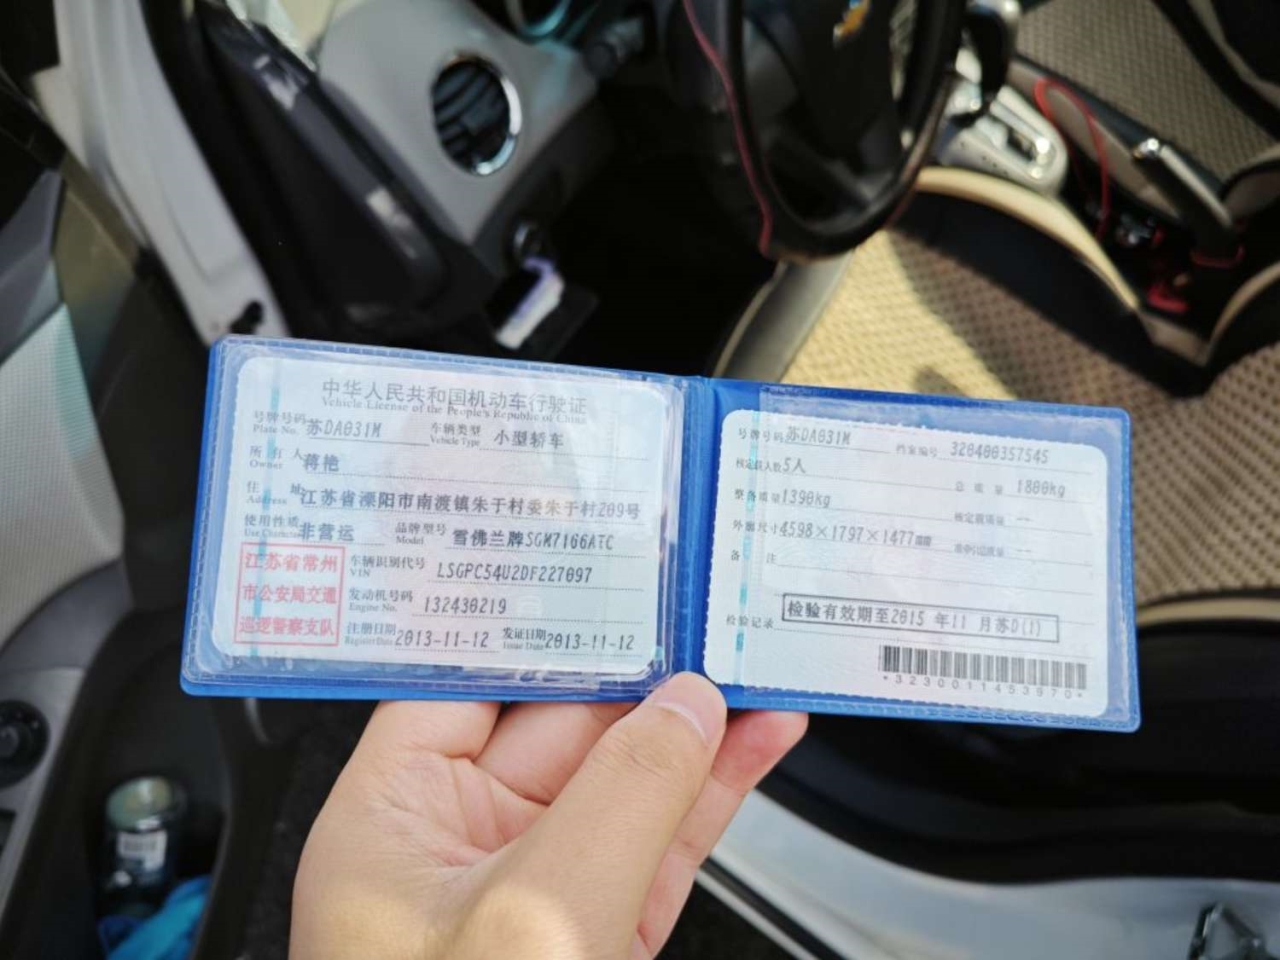 中华人民共和国机动车行驶证
Vehicle License of the People's Republic of China
号牌号码 苏DA031M 车辆类型 小型轿车
Plate No. Vehicle Type
所有人 蒋艳
Owner
住址 江苏省溧阳市南渡镇朱于村委朱于村209号
Address
使用性质 非营运 品牌型号 雪佛兰牌SGM7166ATC
Use Character Model
江苏省常州
市公安局交通
巡逻警察支队
车辆识别代号 LSGPC54U2DF227097
VIN
发动机号码 132430219
Engine No.
注册日期 2013-11-12 发证日期 2013-11-12
Register Date Issue Date
号牌号码 苏DA031M 档案编号 320400357545
核定载人数 5人 总质量 1800kg
整备质量 1390kg 核定载质量 --
外廓尺寸 4598×1797×1477 准牵引总质量 --
备注
检验记录 检验有效期至2015年11月苏D(1)
*3230011453970*